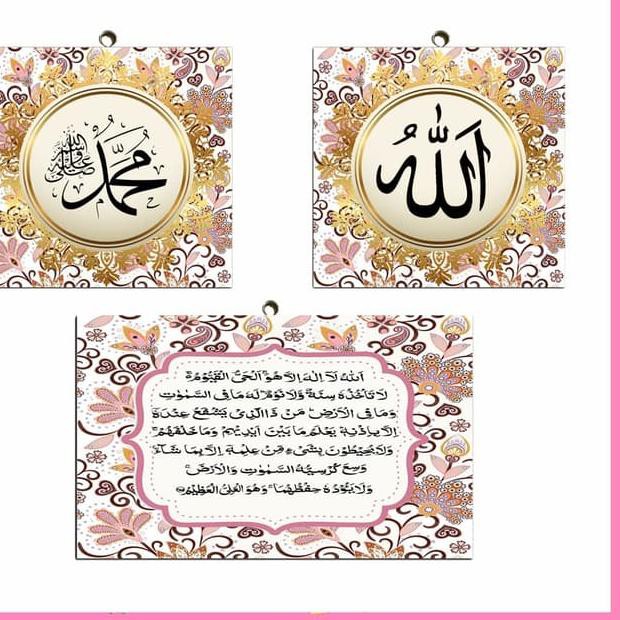 محمد
صلى الله عليه وسلم
الله
الله لا اله الا هو الحي القيوم
لا تاخذه سنة ولا نوم له ما في السموت
وما في الارض من ذا الذي يشفع عنده
الا باذنه يعلم ما بين ايديهم وما خلفهم
ولا يحيطون بشيء من علمه الا بما شاء
وسع كرسيه السموت والارض
ولا يؤده حفظهما وهو العلي العظيم